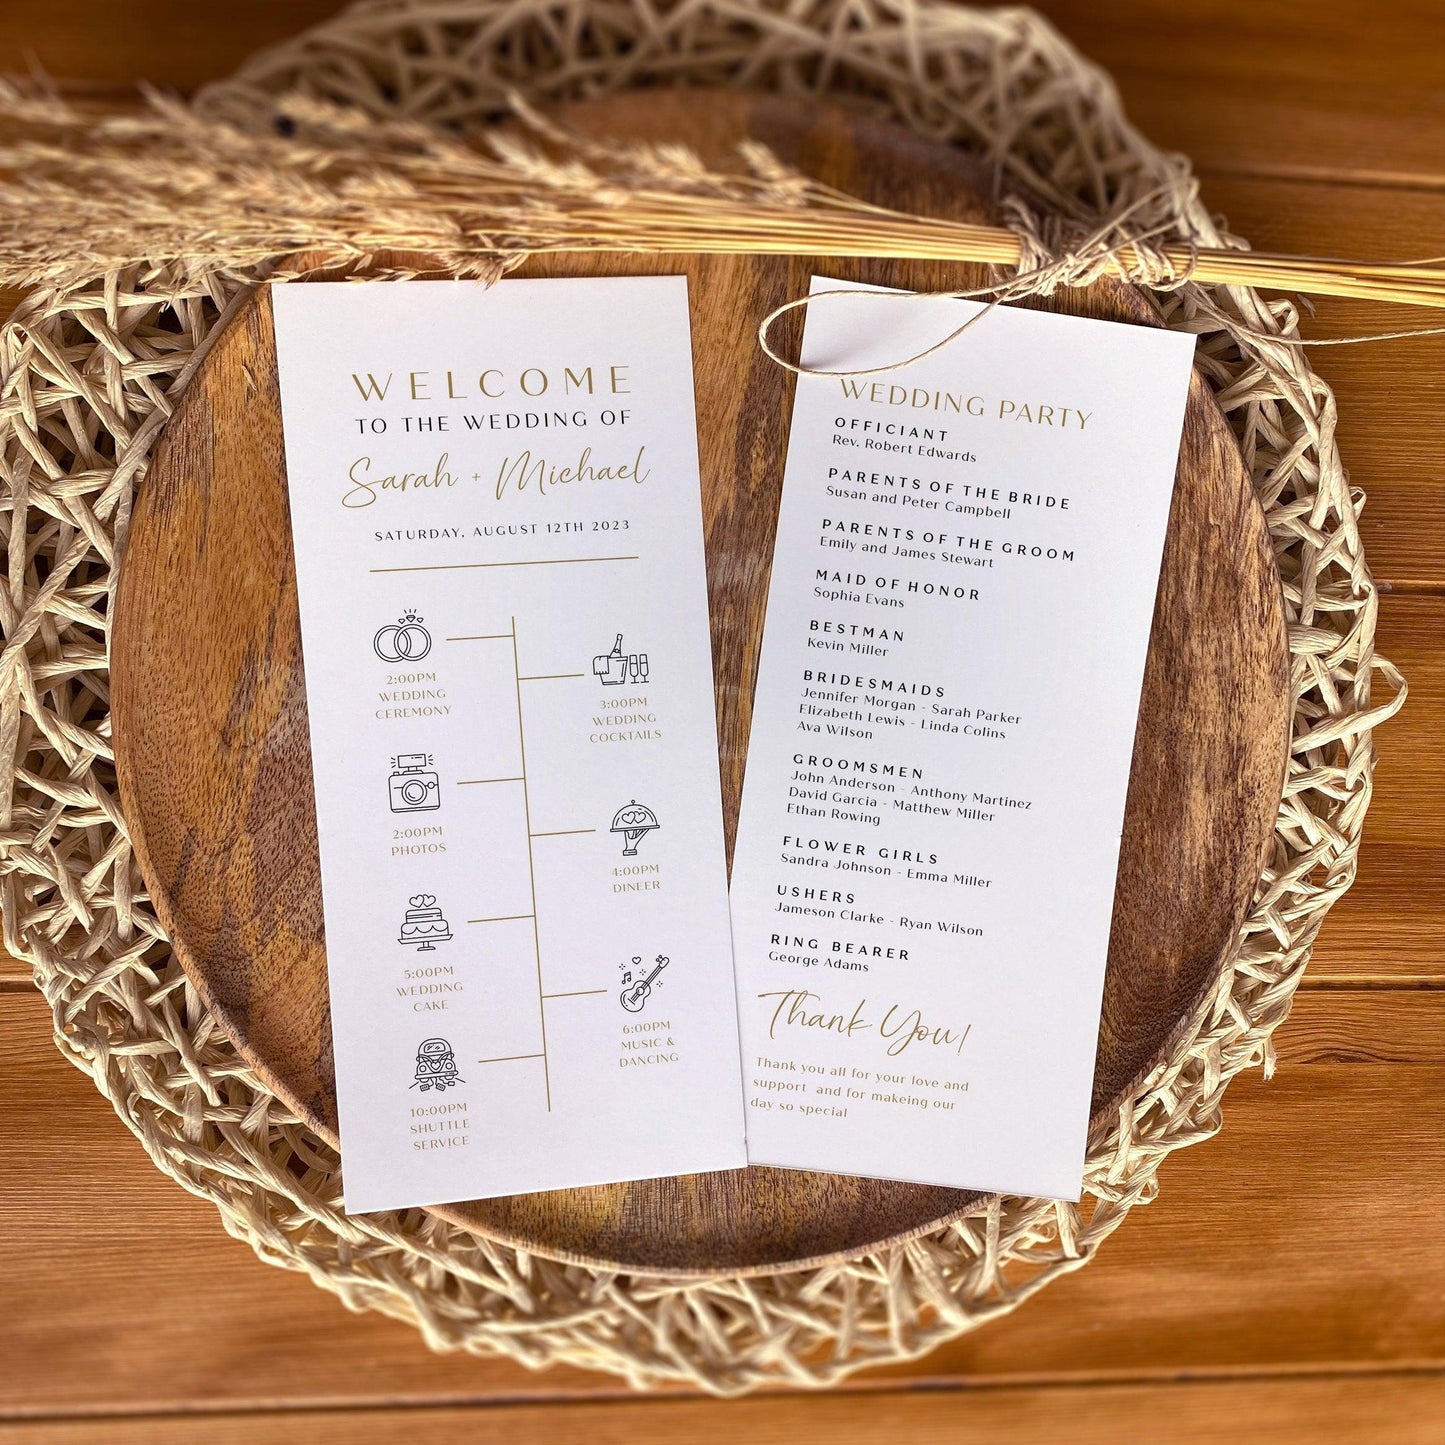 WELCOME
TO THE WEDDING OF
Sarah + Michael
SATURDAY, AUGUST 12TH 2023
2:00PM
WEDDING
CEREMONY
3:00PM
WEDDING
COCKTAILS
2:00PM
PHOTOS
4:00PM
DINEER
5:00PM
WEDDING
CAKE
6:00PM
MUSIC &
DANCING
10:00PM
SHUTTLE
SERVICE
WEDDING PARTY
OFFICIANT
Rev. Robert Edwards
PARENTS OF THE BRIDE
Susan and Peter Campbell
PARENTS OF THE GROOM
Emily and James Stewart
MAID OF HONOR
Sophia Evans
BESTMAN
Kevin Miller
BRIDESMAIDS
Jennifer Morgan - Sarah Parker
Elizabeth Lewis - Linda Colins
Ava Wilson
GROOMSMEN
John Anderson - Anthony Martinez
David Garcia - Matthew Miller
Ethan Rowing
FLOWER GIRLS
Sandra Johnson - Emma Miller
USHERS
Jameson Clarke - Ryan Wilson
RING BEARER
George Adams
Thank You!
Thank you all for your love and
support and for makeing our
day so special